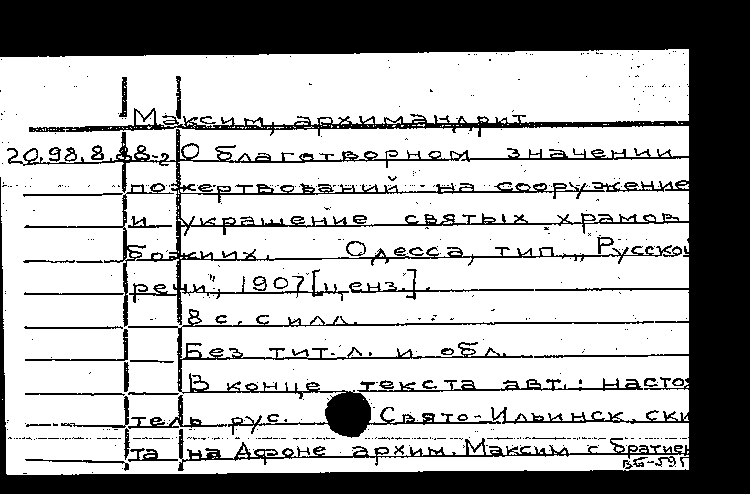 Максим, архимандрит
20.98.8.88-2 О благотворном значении
пожертвований на сооружение
и украшение святых храмов
божиих. Одесса, тип. „Русской
речи", 1907 [ценз.].
8 с. с илл.
Без тит. л. и обл.
В конце текста авт.: насто
тель рус. Свято-Ильинск. ски
та на Афоне архим. Максим с братие